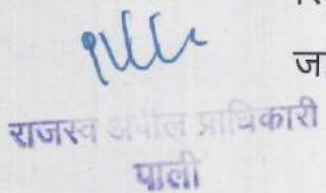 ज
राजस्व अपील प्राधिकारी
पाली